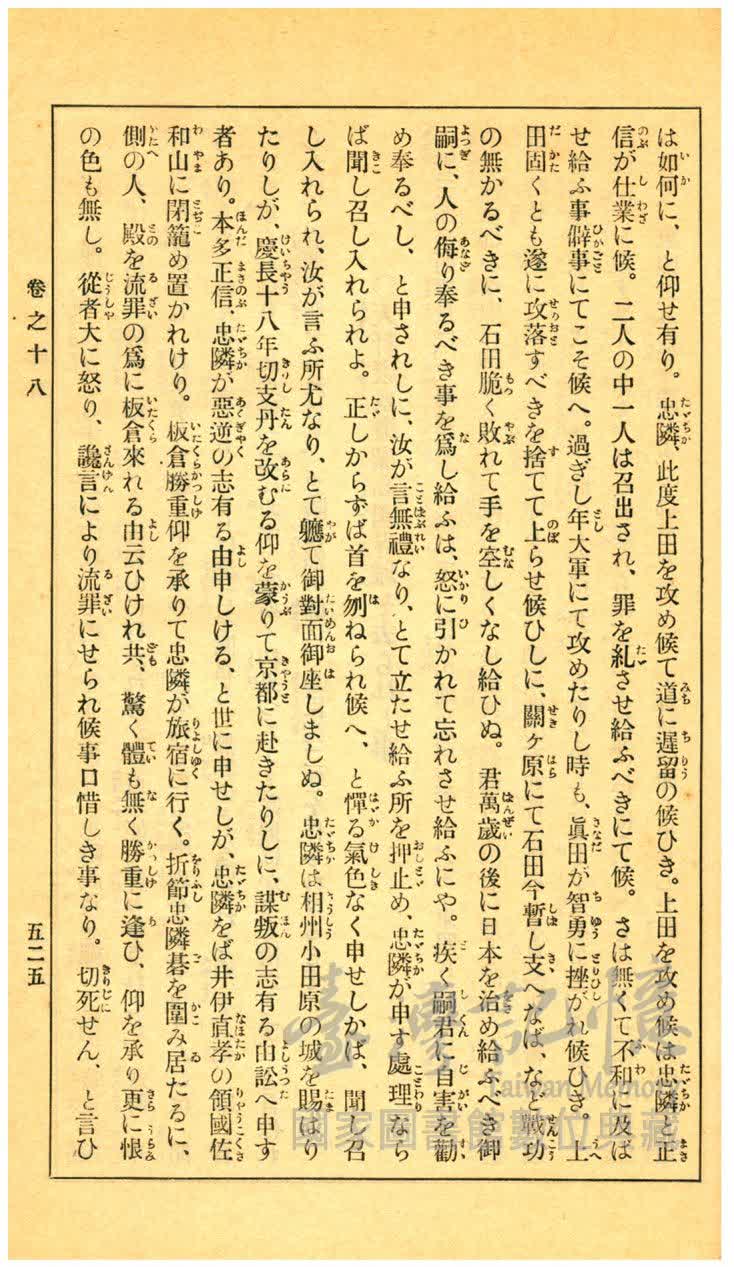 は如何に、と仰せ有り。忠隣、此度上田を攻め候て道に遲留の候ひき。上田を攻め候は忠隣と正
信が仕業に候。二人の中一人は召出され、罪を糺させ給ふべきにて候。さは無くて不和に及ば
せ給ふ事僻事にてこそ候へ。過ぎし年大軍にて攻めたりし時も、眞田が智勇に挫がれ候ひき。上
田固くとも遂に攻落すべきを捨てて上らせ候ひしに、關ヶ原にて石田今暫し支へなば、など戰功
の無かるべきに、石田脆く敗れて手を空しくなし給ひぬ。君萬歲の後に日本を治め給ふべき御
嗣に、人の侮り奉るべき事を爲し給ふは、怒に引かれて忘れさせ給ふにや。疾く嗣君に自害を勸
め奉るべし、と申されしに、汝が言無禮なり、とて立たせ給ふ所を押止め、忠隣が申す處理なら
ば聞し召し入れられよ。正しからずば首を刎ねられ候へ、と憚る氣色なく申せしかば、聞し召
し入れられ、汝が言ふ所尤なり、とて軈て御對面御座しましぬ。忠隣は相州小田原の城を賜はり
たりしが、慶長十八年切支丹を改むる仰を蒙りて京都に赴きたりしに、謀叛の志有る由訟へ申す
者あり。本多正信、忠隣が惡逆の志有る由申しける、と世に申せしが、忠隣をば井伊直孝の領國佐
和山に閉籠め置かれけり。板倉勝重仰を承りて忠隣が旅宿に行く。折節忠隣碁を圍み居たるに、
側の人、殿を流罪の爲に板倉來れる由云ひけれ共、驚く體も無く勝重に逢ひ、仰を承り更に恨
の色も無し。從者大に怒り、讒言により流罪にせられ候事口惜しき事なり。切死せん、と言ひ
卷之十八
五二五
臺灣記憶
Taiwan Memory
國家圖書館數位典藏